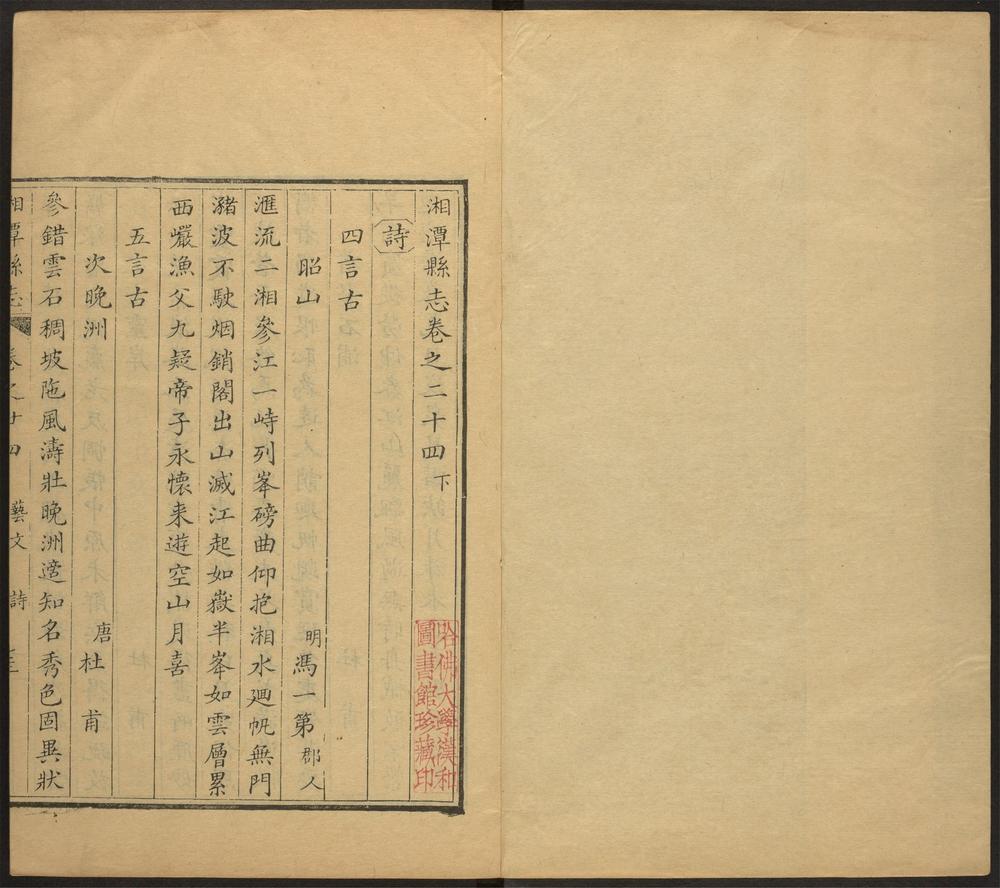 湘潭縣志卷之二十四下
詩
四言古
昭山 明馮一第郡人
滙流二湘參江一峙列峯磅曲仰抱湘水廻帆無門
瀦波不駛烟銷閣出山滅江起如嶽半峯如雲層累
西巖漁父九疑帝子永懷来遊空山月喜
五言古
次晚洲 唐杜甫
參錯雲石稠坡陁風濤壯晚洲適知名秀色固異狀
湘潭縣志 卷之 十四 藝文 詩
哈佛大學漢和圖書館珍藏印